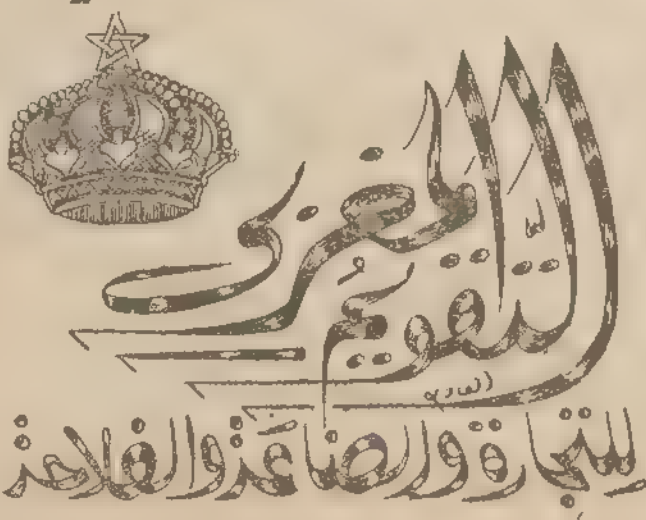 التقويم المغربي
للتجارة والصناعة والفلاحة